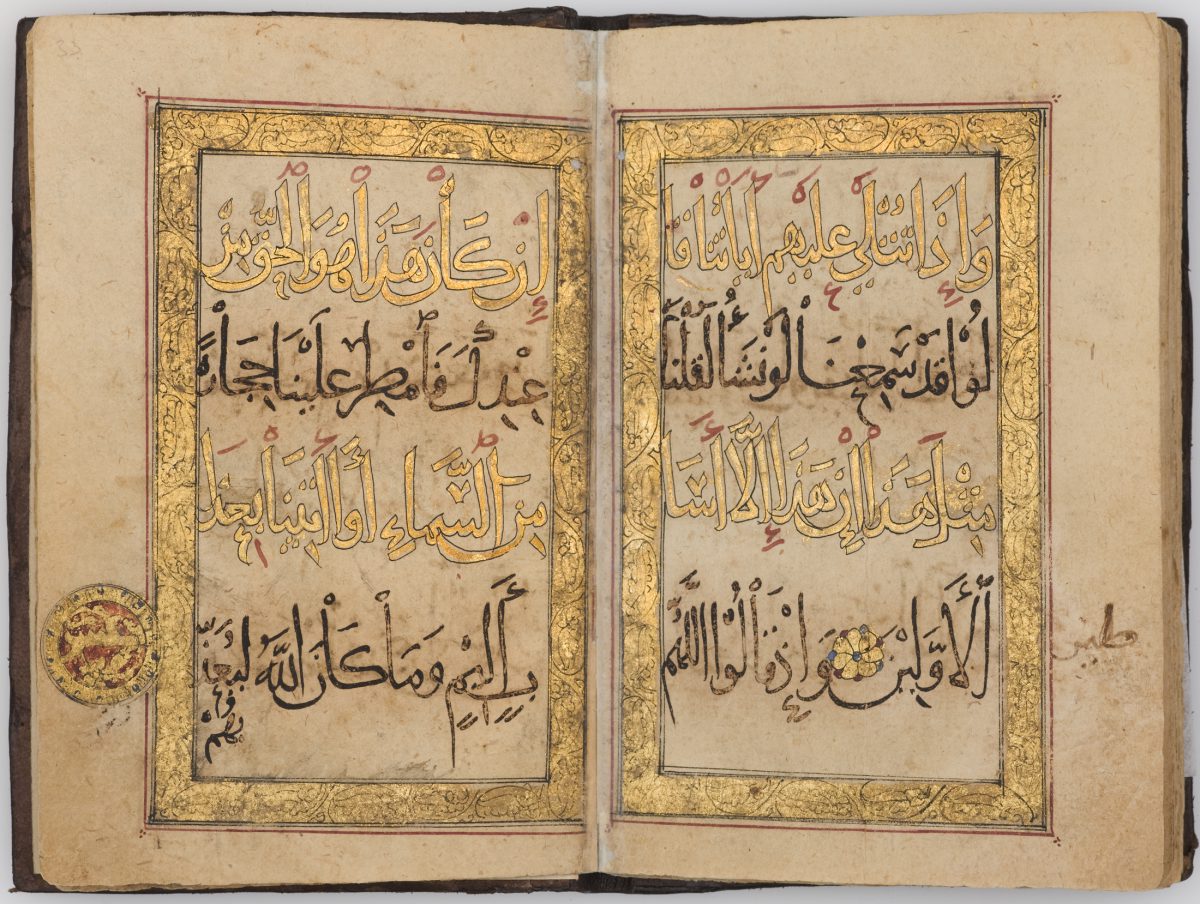 وَإِذَا تُتْلَى عَلَيْهِمْ آيَاتُنَا قَا
لُوا قَدْ سَمِعْنَا لَوْ نَشَاءُ لَقُلْنَا
مِثْلَ هَذَا إِنْ هَذَا إِلَّا أَسَا
الْأَوَّلِينَ وَإِذْ قَالُوا اللَّهُمَّ
إِنْ كَانَ هَذَا هُوَ الْحَقَّ مِنْ
عِنْدِكَ فَأَمْطِرْ عَلَيْنَا حِجَارَةً
مِنَ السَّمَاءِ أَوِ ائْتِنَا بِعَذَا
بٍ أَلِيمٍ وَمَا كَانَ اللَّهُ لِيُعَذِّ
بَهُمْ
33